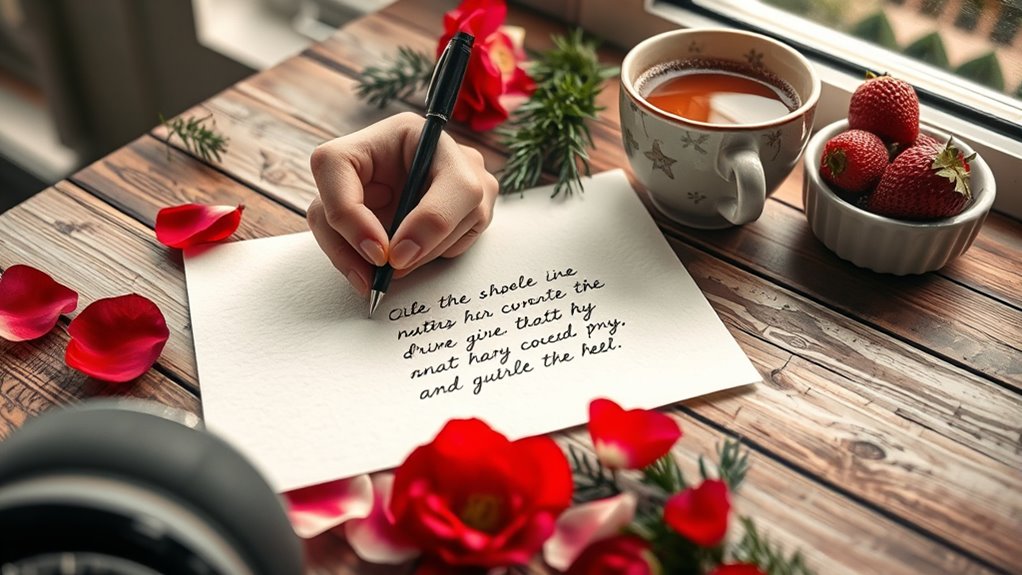 Oule the shoele ine
nutirs her cuverte the
drive give thatt hy
mnat hary coued pmy.
and guirle the heel.